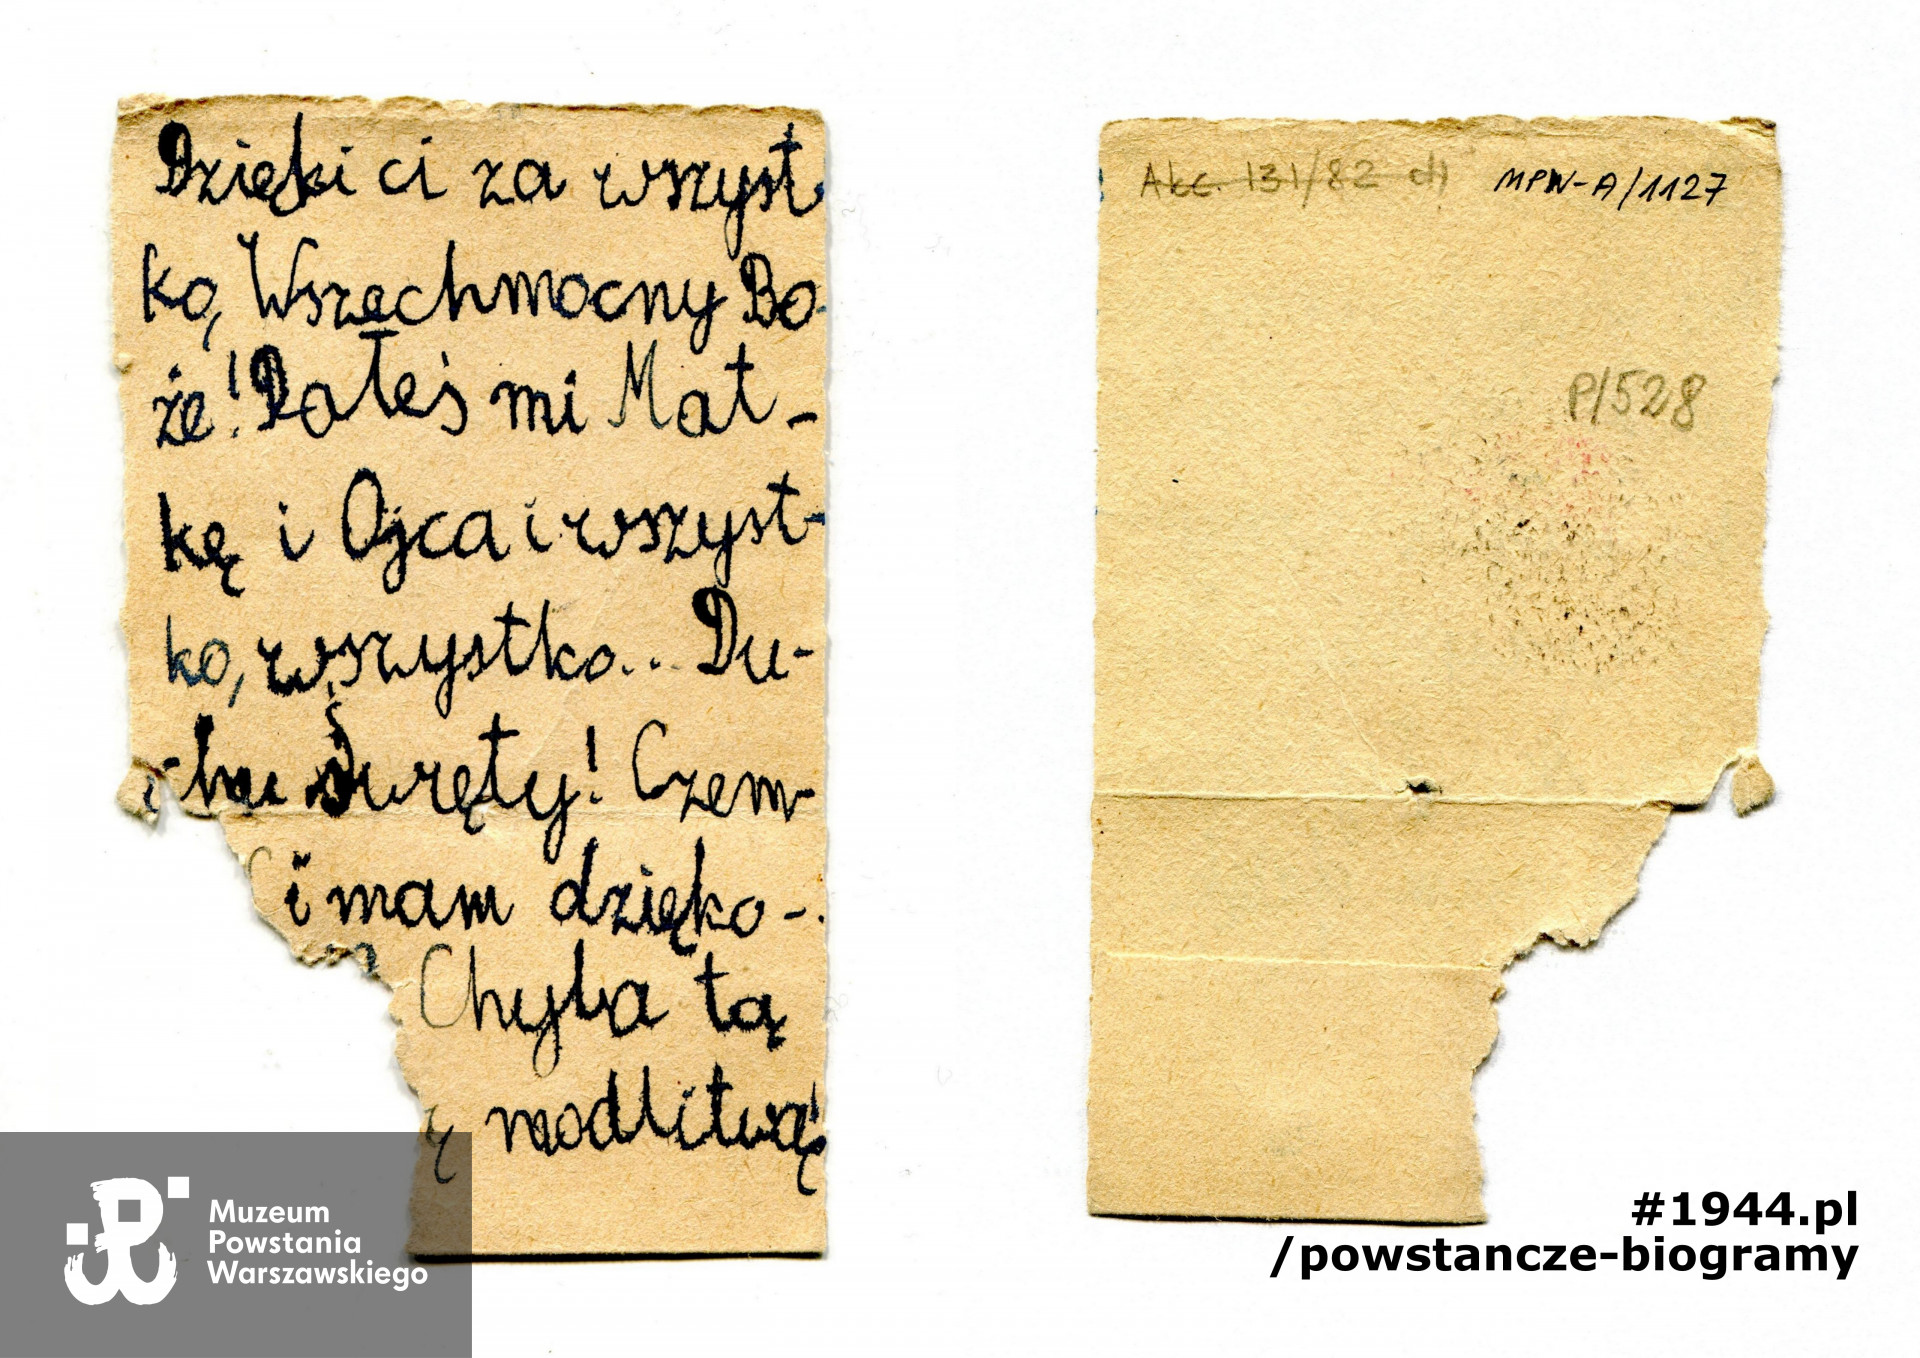 Dzięki ci za wszyst-
ko, Wszechmocny Bo-
że! Dałeś mi Mat-
kę i Ojca i wszyst-
ko, wszystko... Du-
chu Święty! Czem-
i mam dzięko-
Chyba tą
modlitwę!
Akc. 131/82 d)
MPW-A/1127
P/528
Muzeum
Powstania
Warszawskiego
#1944.pl
/powstancze-biogramy